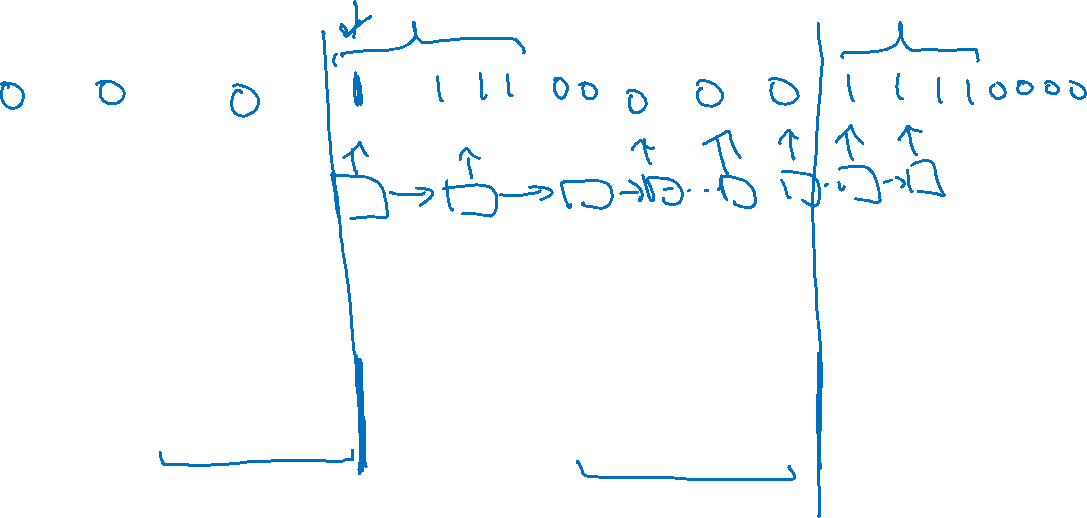 0 0 0 1 1 1 1 0 0 0 0 0 1 1 1 1 0 0 0 0